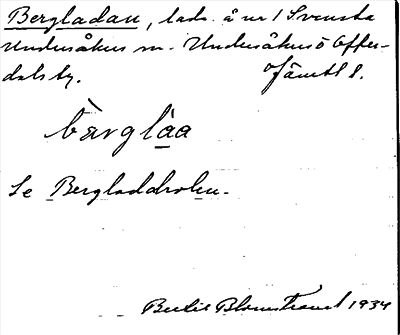 Bergladan, lada å nr 1 Svenska
Undersåkers m. Undersåkers o Offer-
dals tg. Jämtl l.
bàrgláa
Se Bergladdholen.
Bertil Blomstrand 1934